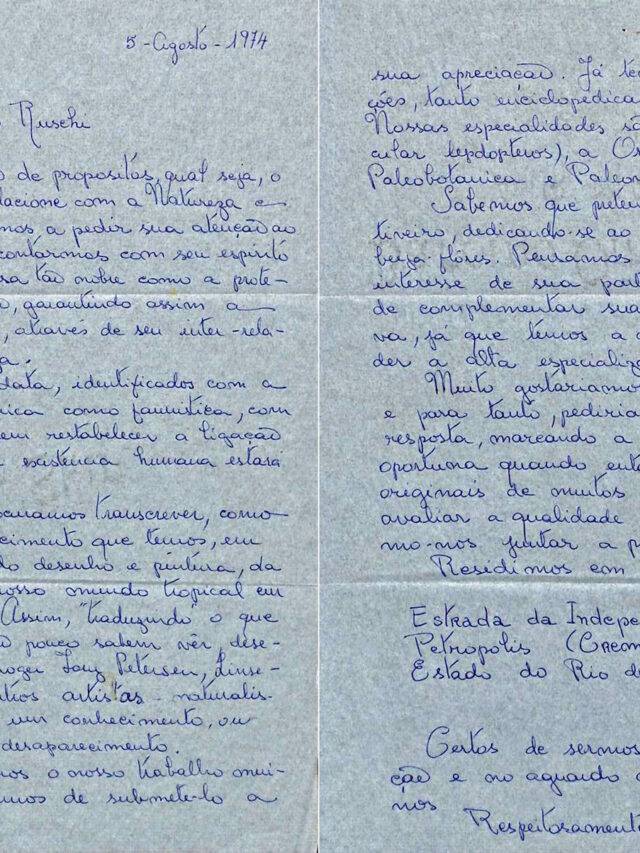 5 - Agosto - 1974
Ruschi
o de propositos, qual seja, o
lacione com a Natureza e
mos a pedir sua atenção ao
contarmos com seu espirito
sa tão nobre como a prote-
o, garantindo assim a
, através de seu inter-rela-
ça.
data, identificados com a
ica como faunistica, com
em restabelecer a ligação
a existencia humana estará
ocuramos transcrever, como
ecimento que temos, em
do desenho e pintura, da
nosso mundo tropical em
Assim, "traduzindo" o que
ão pouco sabem vêr, dese-
roger Tory Petersen, Linse-
utros artistas-naturalis-
um conhecimento, ou
desaparecimento.
mos o nosso trabalho mui-
amos de submete-lo a
sua apreciação. Já te
ções, tanto enciclopedica
Nossas especialidades sã
cular lepdopteros), a Or
Paleobotanica e Paleon
Sabemos que preten
tiveiro, dedicando-se ao
beija-flôres. Pensamos
interesse de sua part
de complementar sua
va, já que temos a
der a alta especializ
Muito gostariamos
e para tanto, pediria
resposta, marcando a
oportuna quando ent
originais de muitos
avaliar a qualidade
mo-nos juntar a p
Residimos em
Estrada da Indepe
Petropolis (Cremo
Estado do Rio de
Certos de sermos
ção e no aguardo
nos
Respeitosament